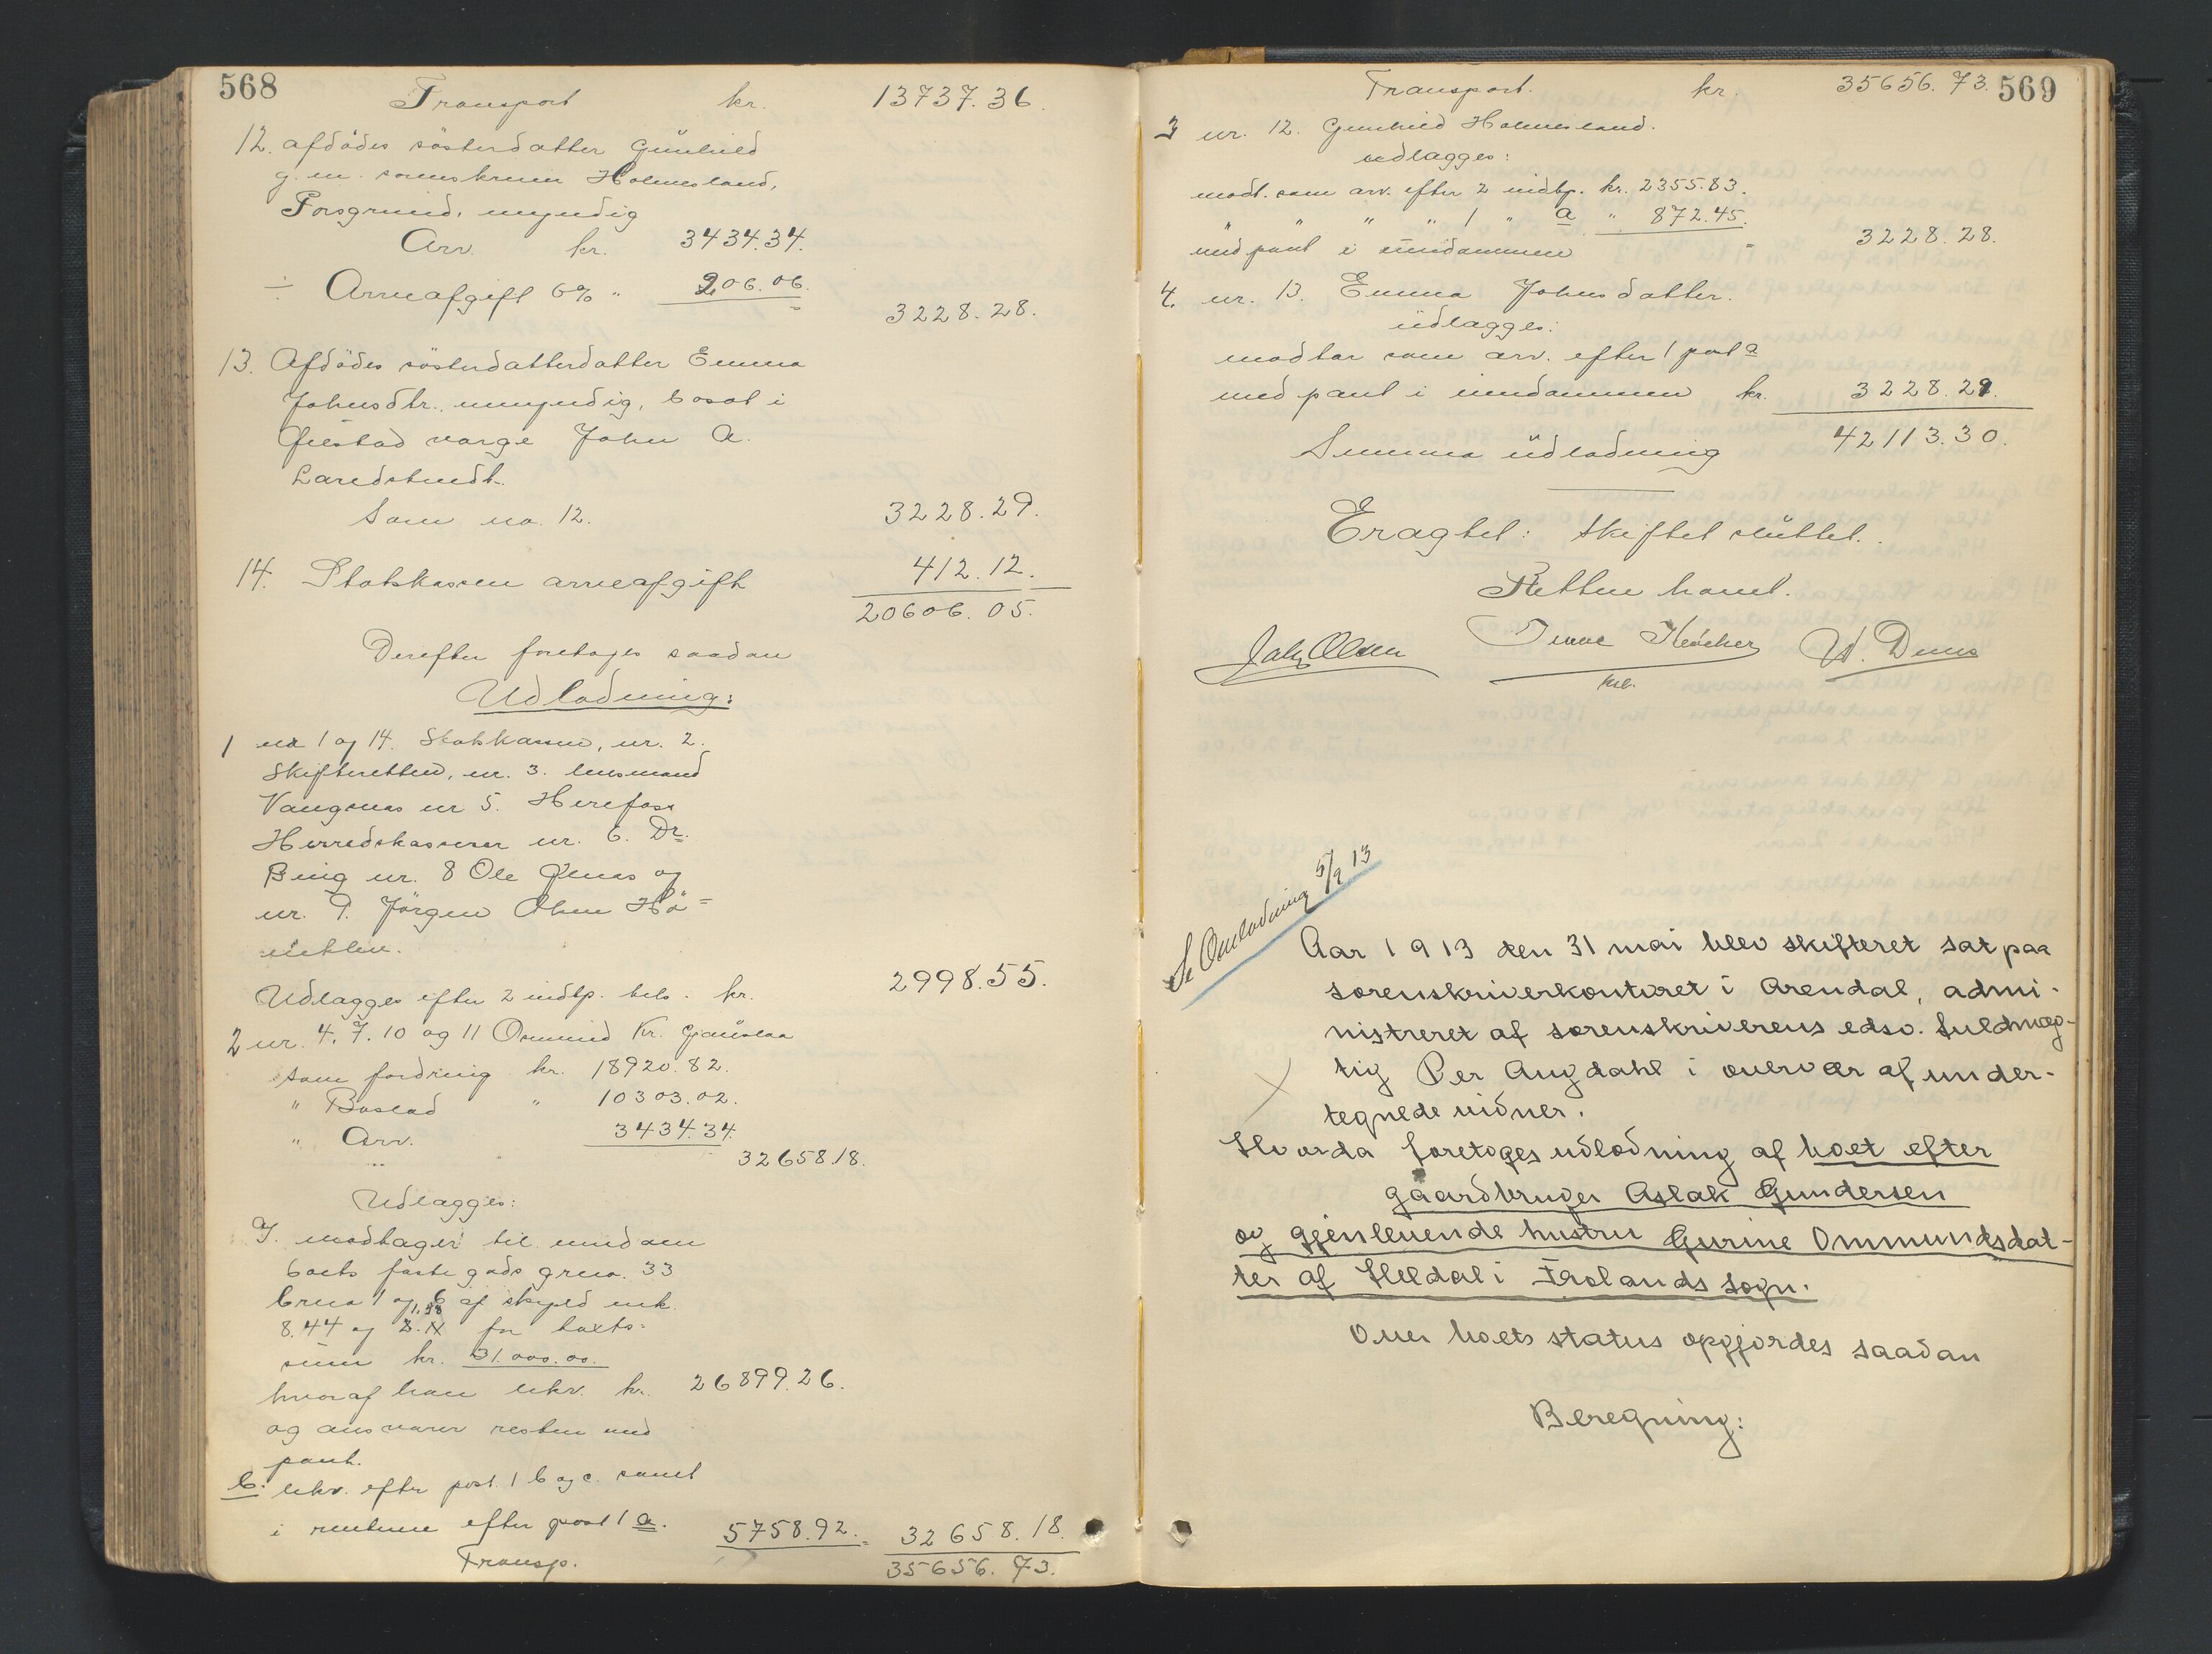 568
Transport kr. 13737.36.
12. afdödes sösterdatter Gunhild
g. m. sorenskriver Holmesland,
Porsgrund, myndig
Arv. kr. 3434.34.
÷ Arveafgift 6% " 206.06.
3228.28.
13. Afdödes sösterdatterdatter Emma
Johnsdtr., umyndig, bosat i
værge John A.
Som no. 12. 3228.29.
14. Statskassen arveafgift 412.12.
20606.05.
Derefter foretages saadan
Udlodning:
1 nr 1 og 14. Statskassen, nr. 2.
Skifteretten, nr. 3. lensmand
Vangsnes nr 5. Herefoss
Herredskasserer nr. 6. Dr.
Bing nr. 8 Ole og
nr. 9. Jörgen
Udlægges efter 2 indtp. bets. kr. 2998.55.
2 nr. 4, 7, 10 og 11 Ommund Kr.
som fordring kr. 18920.82.
" Boslod " 10303.02.
" Arv. 3434.34.
32658.18.
Udlægges:
modtager til eiendom
boets faste gods grno. 33
brno 1 og 6 af skyld mk.
8.44 og 1.98 for taxts-
sum kr. 31.000.00.
hvoraf han likv. kr. 26899.26.
og ansvarer resten med
pant.
b. likv. efter post. 1 b og c. samt
i renterne efter post 1 a. 5758.92. 32658.18.
Transp. 35656.73.
Transport. kr. 35656.73. 569
3 nr. 12. Gunhild Holmesland.
udlægges:
modt. som arv. efter 2 indtp. kr. 2355.83.
" " " " 1 " a " 872.45.
med pant i eiendommen 3228.28.
4. nr. 13. Emma Johnsdatter.
udlægges:
modtar som arv. efter 1 post a
med pant i eiendommen kr. 3228.29.
Summa udlodning 42113.30.
Eragtet: Skiftet sluttet.
Retten hævet.
Olsen
Se Omlodning 5/9 13
Aar 1913 den 31 mai blev skifteret sat paa
sorenskriverkontoret i Arendal, admi-
nistreret af sorenskriverens edsv. fuldmæg-
tig Per Augdahl i overvær af under-
tegnede vidner.
Hvorda foretoges udlodning af boet efter
gaardbruger Aslak Gundersen
og gjenlevende hustru Gurine Ommundsdat-
ter af Heldal i Frolands sogn.
Over boets status opgjordes saadan
Beregning: